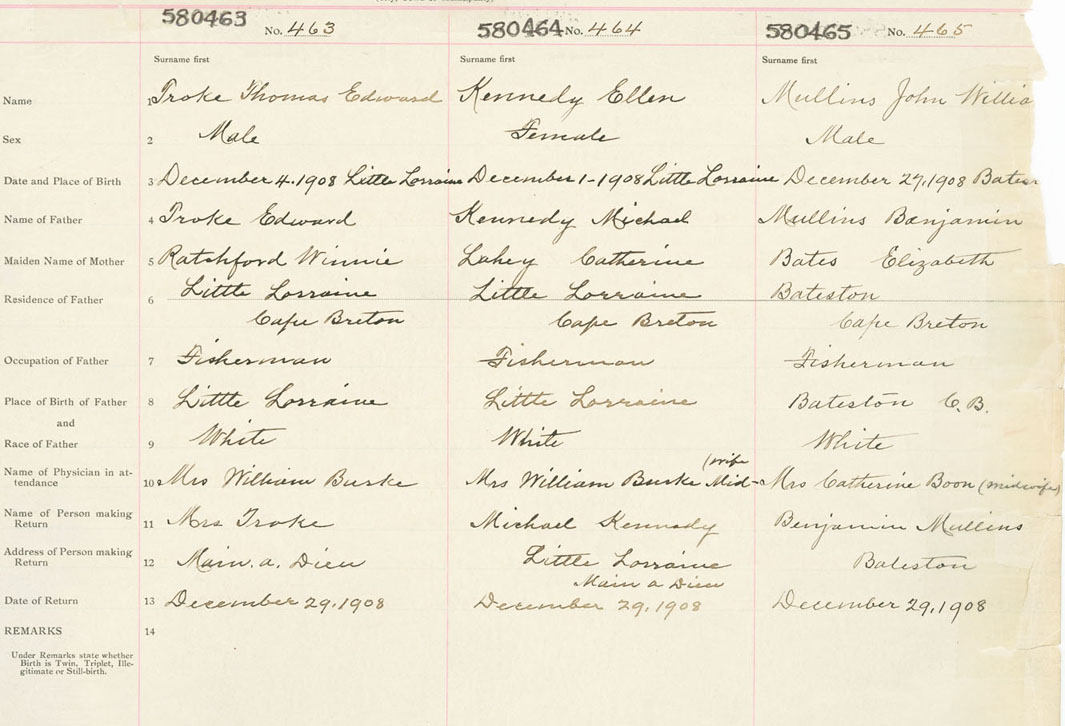 580463 No. 463 580464 No. 464 580465 No. 465
Surname first Surname first Surname first
Name 1 Troke Thomas Edward Kennedy Ellen Mullins John Willia
Sex 2 Male Female Male
Date and Place of Birth 3 December 4. 1908 Little Lorraine December 1-1908 Little Lorraine December 27, 1908 Batest
Name of Father 4 Troke Edward Kennedy Michael Mullins Benjamin
Maiden Name of Mother 5 Ratchford Winnie Lahey Catherine Bates Elizabeth
Residence of Father 6 Little Lorraine Little Lorraine Bateston
Cape Breton Cape Breton Cape Breton
Occupation of Father 7 Fisherman Fisherman Fisherman
Place of Birth of Father 8 Little Lorraine Little Lorraine Bateston C.B.
and
Race of Father 9 White White White
(wife
Name of Physician in at-
tendance 10 Mrs William Burke Mrs William Burke Mid- Mrs Catherine Boon (midwife)
Name of Person making
Return 11 Mrs Troke Michael Kennedy Benjamin Mullins
Address of Person making
Return 12 Main. a. Dieu Little Lorraine Bateston
Main a Dieu
Date of Return 13 December 29, 1908 December 29, 1908 December 29, 1908
REMARKS 14
Under Remarks state whether
Birth is Twin, Triplet, Ille-
gitimate or Still-birth.